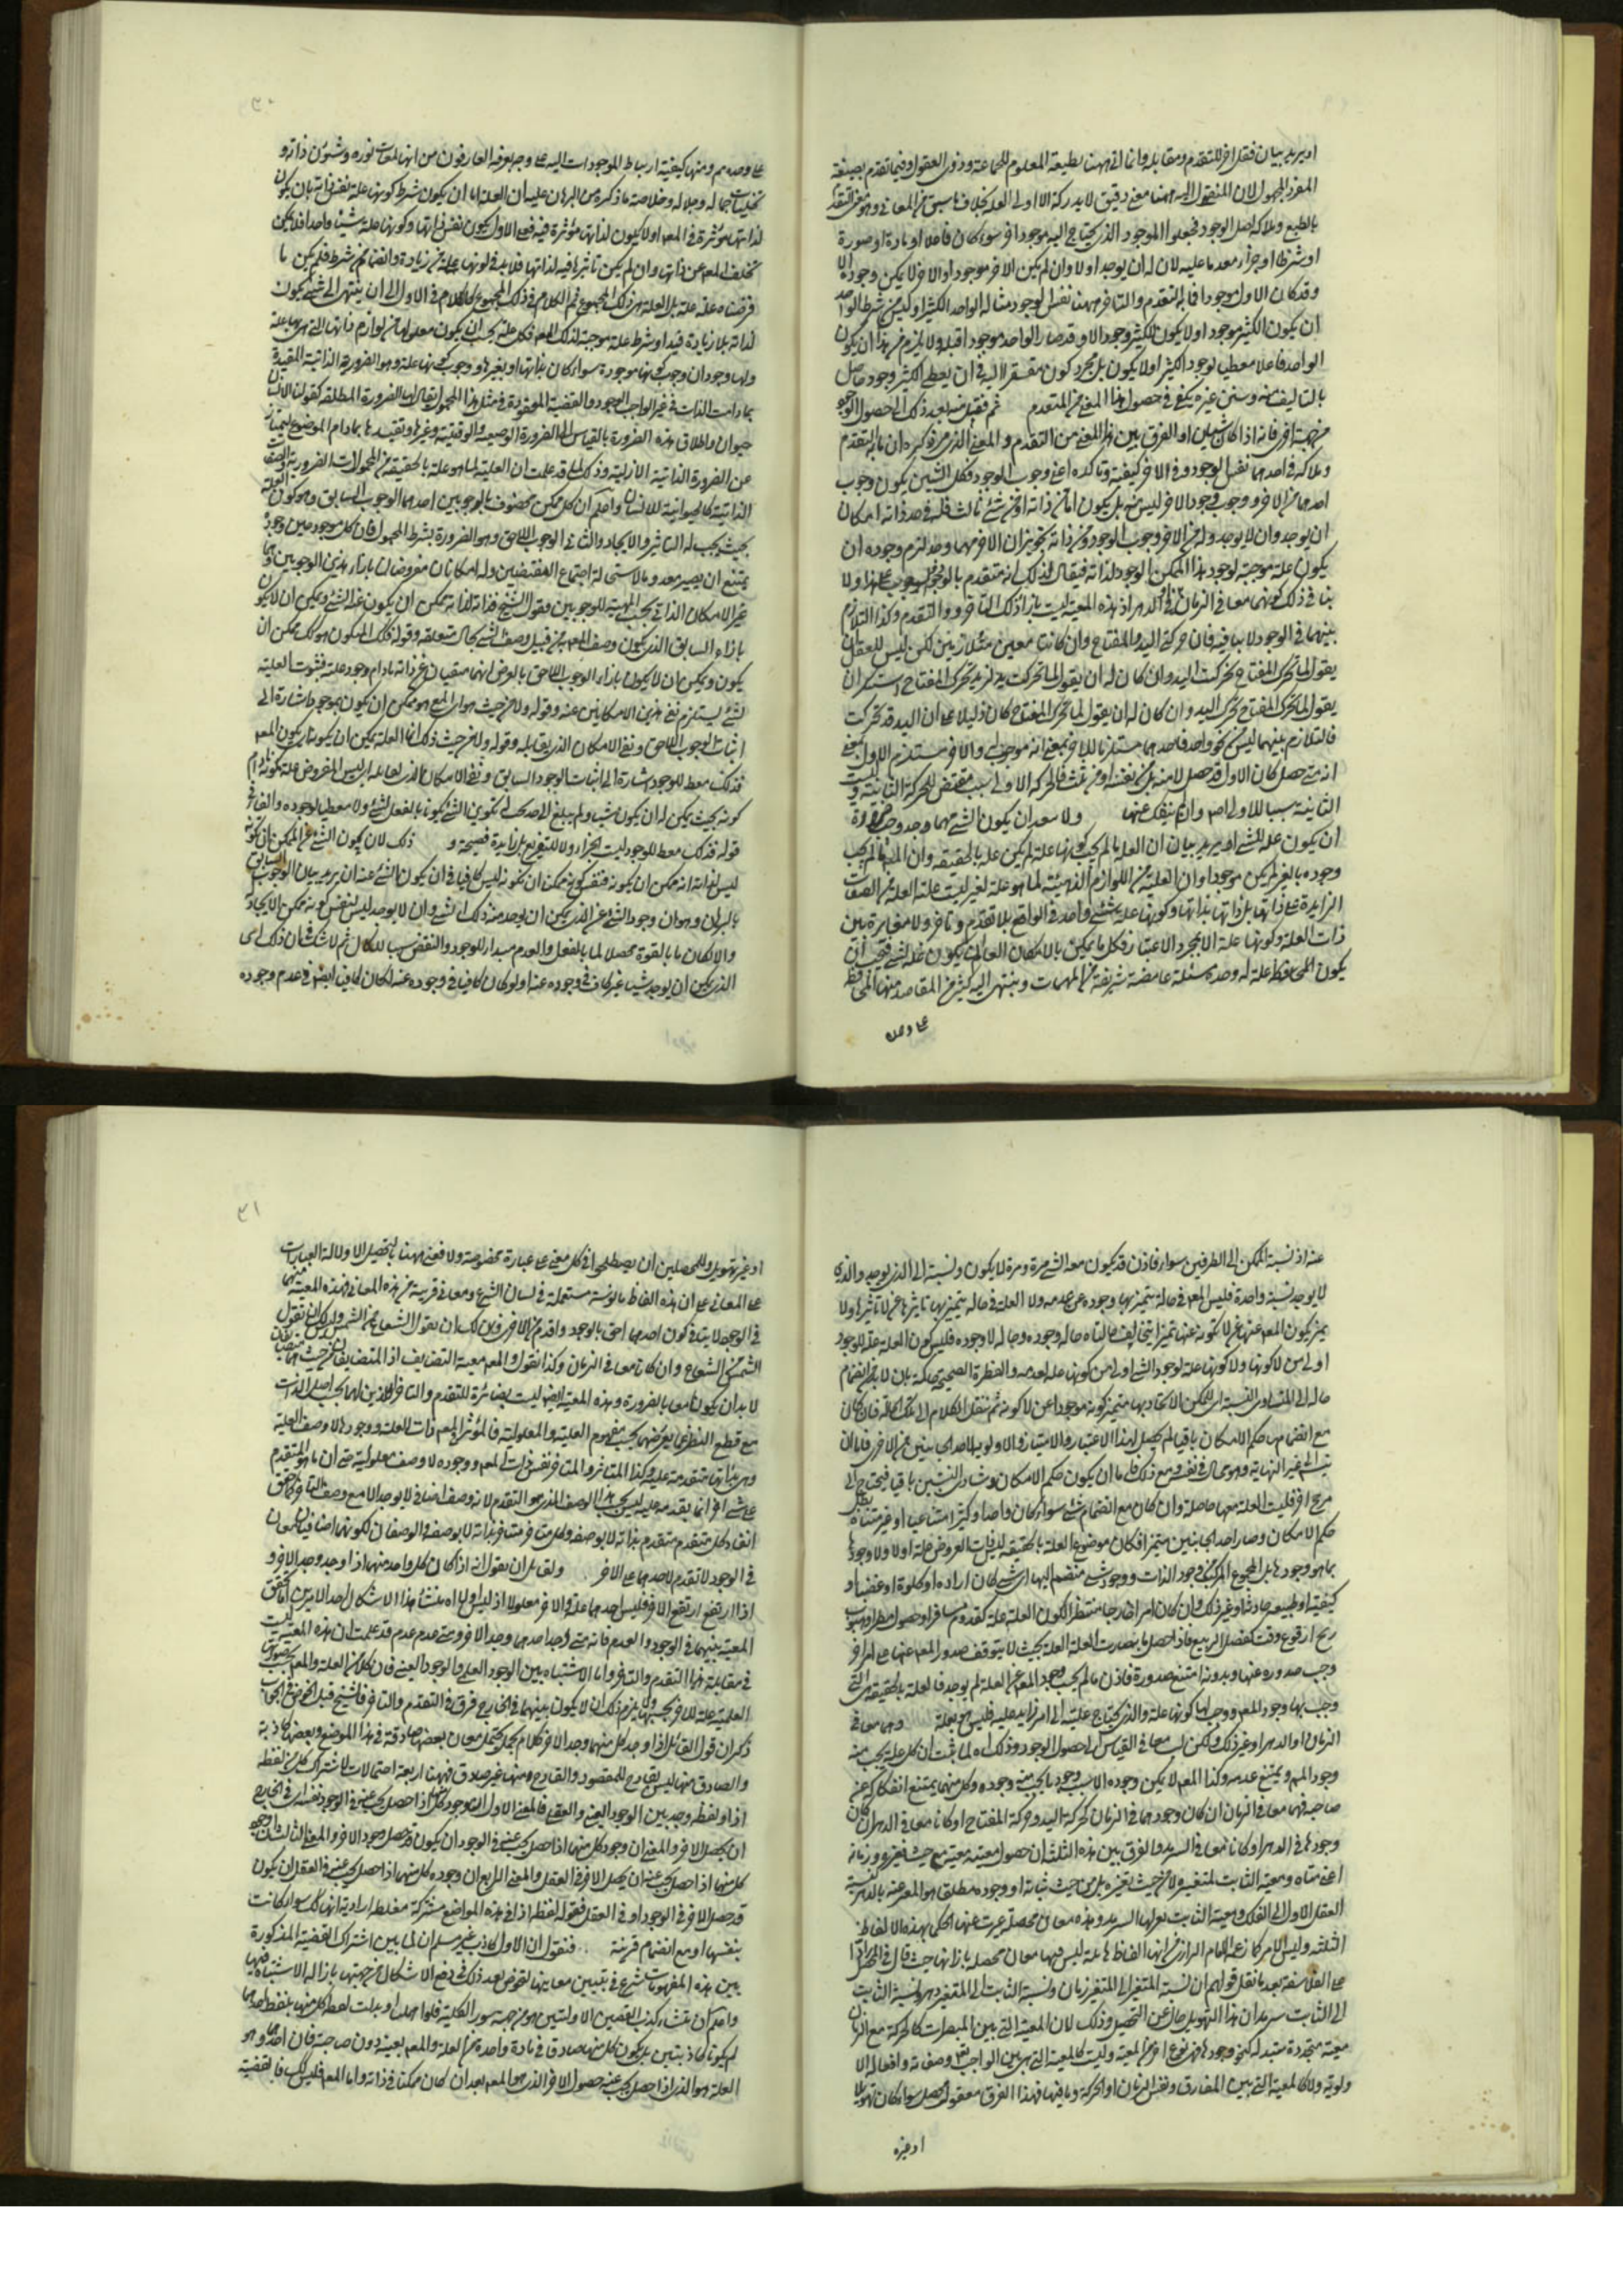 اويريد بيان نقل اخر للتقدم ومقابله وانما اتى ههنا بطيعة المعلوم للجماعة وذوى العقول وفيما تقدم بصيغة
المفرد المجهول لان المنقول اليه ههنا معنى دقيق لا يدركه الا اولى العلم بخلاف ما سبق من المعانى وهو معنى التقدم
بالطبع وملاكه اصل الوجود فجعلوا الموجود الذى يحتاج اليه موجود اخر سواء كان فاعلا او مادة او صورة
او شرطا او جزاء معدما عليه لان له ان يوجد اولا وان لم يكن الاخر موجودا والاخر لا يكن وجوده الا
وقد كان الاول موجودا فما به التقدم والتاخر ههنا نفس الوجود مثاله الواحد والكثير اذ ليس من شرط الواحد
ان يكون الكثير موجودا ولا يكون للكثير وجود الا وقد صار الواحد موجودا قبله ولا يلزم من هذا ان يكون
الواحد فاعلا معطيا لوجود الكثير اولا يكون بل مجرد كونه مفتقرا اليه فى ان يعطى الكثير وجود حاصل
بالتاليف منه ومن غيره يكفى فى حصول هذا المعنى من المتقدم ثم نقل منه بعد ذلك الى حصول الوجود
من جهة اخرى فانه اذا كان شيئان او الفرق بين هذا المعنى من التقدم والمعنى الذى مر ذكره ان ما به التقدم
وملاكه فى احدهما نفس الوجود وفى الاخر كيفيته وتاكده اعنى وجوب الوجود فكل شيئين يكون وجوب
احدهما من الاخر ووجوب وجود الاخر ليس منه بل يكون اما من ذاته او من شئ ثالث فله فى حد ذاته امكان
ان يوجد وان لا يوجد وله من الاخر وجوب الوجود ومن ذاته تجويز ان الاخر مهما وجد لزم وجوده ان
يكون علة موجبة لوجود هذا الممكن الوجود لذاته فيقال لذلك انه متقدم بالوجوب على هذا ولا
ينافى ذلك كونهما معا فى الزمان او فى الدهر اذ هذه المعية ليست بازاء ذلك التاخر والتقدم وكذا التلازم
بينهما فى الوجود لا ينافيه فان حركة اليد والمفتاح وان كانتا معين متلازمين لكن ليس للعقل
يقول لما تحرك المفتاح تحركت اليد وان كان له ان يقول لما تحركت يد زيد تحرك المفتاح
يقول لما تحرك المفتاح تحرك اليد وان كان له ان يقول لما تحرك المفتاح كان دليلا على ان اليد قد تحركت
فالتلازم بينهما ليس على نحو واحد فاحدهما مستلزما للاخر بمعنى انه موجبه والاخر مستلزم للاول بمعنى
انه متى حصل كان الاول قد حصل لا منه بل من نفسه او من ثالث فالحركة الاولى سبب مقتض للحركة الثانية وليست
الثانية سببا للاولى وان لم ينفك عنها ولا يبعد ان يكون الشئ مهما وجد وجب ضرورة
ان يكون علة لشئ اخر يريد بيان ان العلة ما لم يجب كونها علة لم يكن علة بالحقيقة وان المعلول ما لم يجب
وجوده بالغير لم يكن موجودا وان العلية من اللوازم الذهنية لما هو علة لغير ليست علة العلة من الصفات
الزايدة على ذاتها بل ذاتها بذاتها وكونها علة شئ واحد فى الواقع بلا تقدم وتاخر ولا مغايرة بين
ذات العلة وكونها علة الا بمجرد الاعتبار فكل ما يمكن بالامكان العام ان يكون علة لشئ فيجب ان
يكون علة له وهذه مسئلة غامضة شريفة من المهمات وينتهى اليه كثير من المقاصد منها
على وحده
٣٠
على وحده ومنها كيفية ارتباط الموجودات اليه على وجه يعرفه العارفون من انها لمعات نوره وشئون ذاته و
تجليات جماله وجلاله وخلاصة ما ذكره من البرهان عليه ان العلة اما ان يكون شرط كونها علة نفس ذاته بان يكون
لذاتها مؤثرة فى المعلول اولا يكون لذاتها مؤثرة فيه فعلى الاول يكون نفس ذاتها وكونها علة شيئا واحدا فلا يمكن
تخلف المعلول عن ذاتها وان لم يكن تاثيرها فيه لذاتها فلابد فى كونها علة من زيادة وانضمام شرط فلم يكن ما
فرضناه علة علة بل العلة هى ذلك المجموع ثم الكلام فى ذلك المجموع كالكلام فى الاول الى ان ينتهى الى شئ يكون
لذاته بلا زيادة قيد او شرط علة موجبة لذلك المعلول فكل علة يجب ان يكون معلولها من لوازم ذاتها التى هى بها علة
ولها وجود ان وجوب كونها موجودة سواء كان بذاتها او بغيرها ووجوب كونها علة وهو الضرورية الذاتية المقيدة
بما دامت الذات فى غير الواجب الوجود والقضية المعقودة فى مثل هذا المحمول يقال لها الضرورة المطلقة كقولنا الانسان
حيوان واطلاق هذه الضرورة بالقياس الى الضرورة الوصفية والوقتية وغيرها وتقييدها بمادام الموضوع ليمتاز
عن الضرورة الذاتية الازلية وذلك لما قد علمت ان العلية لما هو علة بالحقيقة من المحمولات الضرورية والصفات
الذاتية كالحيوانية للانسان واعلم ان كل ممكن محفوف بالوجوبين احدهما الوجوب السابق وهو كون العلة
بحيث يجب له التاثير والايجاد والثانى الوجوب اللاحق وهو الضرورة بشرط المحمول فان كل موجود حين وجوده
يمتنع ان يصير معدوما لاستحالة اجتماع النقيضين وله امكانان مفروضان بازاء هذين الوجوبين وهما
غير الامكان الذاتى بحسب الماهية للوجوبين فقول الشيخ فذاته لذاته يمكن ان يكون علة لشئ ويمكن ان لا يكون
بازاء السابق الذى يكون وصف المعلول من قبيل وصف الشئ بحال متعلقه وقوله فذلك المتكون هو كذلك ممكن ان
يكون ويمكن ان لا يكون بازاء الوجوب اللاحق بالعرض لهما منفيان عن ذاته مادام وجود علة فثبوت العلية
لشئ يستلزم نفى هذين الامكانين عنه وقوله ولا من حيث هو اى المعلول هو ممكن ان يكون بموجود اشارة الى
اثبات الوجوب اللاحق ونفى الامكان الذى يقابله وقوله ولا من حيث ذلك اى العلة يمكن ان يكونه اى يكون المعلول
فذلك معط للوجود اشارة الى اثبات الوجود السابق ونفى الامكان الذى يقابله اى ليس المفروض علة بكونه فى
كونه بحيث يمكن له ان يكون شيئا ولم يبلغ الى حد يجب له تكوين الشئ يكون بالفعل لشئ ولا معطيا لوجوده والفاء فى
قوله فذلك معط للوجود ليست للجزاء ولا للتفريع بل زايدة فصيحة و ذلك لان يكون الشئ من الممكن ان يكونه
ليس لذاته انه ممكن ان يكونه فنفس كونه ممكن ان يكونه ليس كافيا فى ان يكون الشئ عنه ان يريد بيان الوجوب السابق
بالبرهان وهو ان وجود الشئ عن الذى يمكن ان يوجد منه ذلك الشئ وان لا يوجد ليس لنفس كونه ممكن الايجاد
والامكان ما بالقوة محصلا لما بالفعل والعدم مبداء للوجود والنقض سببا للكمال ثم لا شك فى ان ذلك اى
الذى يمكن ان يوجد شيئا غير كاف فى وجوده عنه اذ لو كان كافيا فى وجوده عنه لكان كافيا ايضا فى عدم وجوده
اوغيره
عنه اذ نسبة الممكن الى الطرفين سواء فاذن قد يكون معه الشئ مرة ومرة لا يكون ونسبة الى الذى يوجد والذى
لا يوجد نسبة واحدة فليس المعلول فى حالة يتميز بها وجوده عن عدمه ولا العلة فى حالة يتميز بها تاثيرها عن لا تاثيرها ولا
يميز يكون المعلول عنها عن لا تكونه عنها تميزا يخالف حالتاه حالة وجوده وحالة لا وجوده فليس كون العلة علة للوجود
اولى من لا كونها ولا كونها علة لوجود الشئ اولى من كونها علة لعدمه والفطرة الصحيحة حاكمة بان لابد من انضمام
حالة الى المتساوى النسبة الى الممكن الايجاد بها يتميز كونه موجودا عن لا كونه ثم ننقل الكلام الى تلك الحالة فان كان
مع انضمامها حكم الامكان باقيا لم يحصل بهذا الاعتبار والامتياز والاولوية لاحد الجانبين عن الاخر فاما ان
يتسلسل الى غير النهاية وهو محال فى نفسه ومع ذلك فاما ان يكون حكم الامكان وتساوى النسبتين باقيا فيحتاج الى
مرجح اخر فليست العلة معها حاصلة وان كان مع انضمام شئ سواء كان واحدا او كثيرا متناهيا او غير متناه يبطل
حكم الامكان وصار احد الجانبين متميزا فكان موضوع العلة بالحقيقة ليست المفروض علة اولا ولا وجودها
بما هو وجودها بل المجموع المركب من وجود الذات ووجود شئ منضم اليها اى شئ كان ارادة او كلوة او غضبا و
كيفية او طبيعة حادثة او غير ذلك وان كان امرا خارجا منتظرا لكون العلة علة كقدوم مسافر او حصول مطر او هبوب
ريح او وقوع وقت كفصل الربيع فاذا حصل ما به صارت العلة العلة بحيث لا يتوقف صدور المعلول عنها على امر اخر
وجب صدوره عنها وبدونه امتنع صدوره فاذن ما لم يجب وجود المعلول من العلة لم يوجد فالعلة بالحقيقة هى التى
وجب بها وجود المعلول ووجب لها كونها علة والذى يحتاج علية الى امر زايد عليه فليس هو بعلة وهما معا فى
الزمان او الدهر او غير ذلك ولكن ليسا معا فى القياس الى حصول الوجود وذلك اه لما ثبت ان كل علة يجب منه
وجود المعلول ويمتنع عدمه وكذا المعلول لا يمكن وجوده الا بسبب وجود ما يجب منه وجوده وكل منهما يمتنع انفكاكه عن
صاحبه فهما معا فى الزمان ان كان وجودهما فى الزمان كحركة اليد وحركة المفتاح او كانا معا فى الدهر ان كان
وجودهما فى الدهر او كانا معا فى السرمد والفرق بين هذه الثلث ان حصول معية متغير مع متغير من حيث تغيره وزمانه
اعنى متاه ومعية الثابت للمتغير لا من حيث تغيره بل من حيث ثباته او وجوده مطلق هو المعبر عنه بالدهر كنسبة
العقل الاول الى الفلك ومعية الثابت للثابت يعبر لها السرمد وهذه معان محصلة عبرت عنها الحكماء بهذه الالفاظ
الثلثة وليس الامر كما زعمه الامام الرازى من انها الفاظ هايلة ليس فيها معان محصلة بازائها حيث قال فى المطالب
على الفلاسفة بعد ما نقل قولهم ان نسبة المتغير الى المتغير زمان ونسبة الثابت الى المتغير دهر ونسبة الثابت
الى الثابت سرمد ان هذا التهويل خال عن التحصيل وذلك لان المعية التى بين المتغيرات كالحركة مع الزمان
معية متجددة متبدلة كنحو وجودها فهى نوع اخر من المعية وليست كالمعية التى هى بين الواجب تعالى وصفاته وافعاله الا
ولوية ولا كالمعية التى بين المفارق ونفس الزمان او الحركة وما فيها فهذا الفرق معقول محصل سواء كان تهويلا
اوغيره
٣١
او غير تهويل وللمحصلين ان يصطلحوا فى كل معنى على عبارة مخصوصة ولا نعنى ههنا بالتحصيل الا دلالة العبارات
على المعانى على ان هذه الفاظ مانوسة مستعملة فى لسان الشرع ومعانى قريبة من هذه المعانى فهذه المعية منهما
فى الوجود لا ينافى كون احدهما احق بالوجود واقدم من الاخر وان لك ان يقول الشعاع من الشمس وليس لك ان تقول
الشمس من الشعاع وان كانا معا فى الزمان وكذا نقول والمعلول معية التضايف اذ المتضايفان من حيث هما متضايفان
لابد ان يكونا معا بالضرورة وهذه المعية ايضا ليست بضائرة للتقدم والتاخر اللذين لهما بحسب اصل الذات
مع قطع النظر عما يعرضها بحسب مفهوم العلية والمعلولية فالمؤثر فى المعلول ذات العلة ووجودها لا وصف العلية
وهى بذاتها متقدمة عليه وكذا المتاثر والمتاخر نفس ذات المعلول ووجوده لا وصف معلوليته حتى ان ما هو المتقدم
على شئ اخر انما يقدمه عليه ليس بحسب هذا الوصف الذى هو التقدم لانه وصف اضافى لا يوجد الا مع وصف التاخر
انفاد كل متقدم متقدم بذاته لا بوصفه وكل متاخر متاخر بذاته لا بوصفه والوصفان لكونهما اضافيان معان
فى الوجود لا تقدم لاحدهما على الاخر ولقائل ان يقول انه اذا كان كل واحد منهما اذا وجد وجد الاخر و
اذا ارتفع ارتفع الاخر فليس احدهما علة والاخر معلولا اذ ليس اولى اه منشاء هذا الاشكال احد الامرين اما تحقق
المعية بينهما فى الوجود والعدم فانه متى وجد احدهما وجد الاخر ومتى عدم عدم قد علمت ان هذه المعية ليست
فى مقابلة هذا التقدم والتاخر واما الاشتباه بين الوجود العلمى والوجود العينى فان كلا من العلة والمعلول بحسب حصولها
العلمية علة للاخر بحسبها ولا يلزم من ذلك ان لا يكون بينهما فى الخارج فرق فى التقدم والتاخر فالشيخ قبل الخوض فى الجواب
ذكر ان قول القائل اذا وجد كل منهما وجد الاخر كلام مجمل يحتمل معان بعضها صادقة فى هذا الموضع وبعضها كاذبة
والصادق منها ليس بقادح للمقصود والقادح منها غير صادق فههنا اربعة احتمالات لاشتراك كل من لفظه
اذا ولفظ وجد بين الوجود العينى والعقلى فالمعنى الاول ان وجود كل منهما اذا حصل يجب عنه فى الوجود نفسه اى فى الخارج
ان يحصل الاخر والمعنى ان وجود كل منهما اذا حصل يجب عنه فى الوجود ان يكون قد حصل وجود الاخر والمعنى الثالث ان وجود
كل منهما اذا حصل يجب عنه ان يحصل الاخر فى العقل والمعنى الرابع ان وجود كل منهما اذا حصل يجب عنه فى العقل ان يكون
قد حصل الاخر فى الوجود او فى العقل فقوله لفظ اذا فى هذه المواضع مشتركة مغلطة ارادية انها كذلك سواء كانت
بنفسها او مع انضمام قرينة فنقول ان الاول كاذب غير مسلم ان لما بين اشتراك القضية المذكورة
بين هذه المفهومات شرع فى تبيين معانيها لتخوض بعد ذلك فى دفع الاشكال من جهتها بازالة الاشتباه فيها
واعلم ان منشاء كذب القسمين الاولتين هو من جهة سور الكلية فلو اهملت او بدلت لفظ كل منهما بلفظ احدهما
لم يكونا كاذبتين بل يكون كل منهما صادق فى مادة واحدة من العلة والمعلول بعينه دون صاحبه فان احدهما وهو
العلة هو الذى اذا حصل يجب عنه حصول الاخر الذى هو المعلول بعد ان كان ممكنا فى ذاته واما المعلول فليس كذلك فالقضية